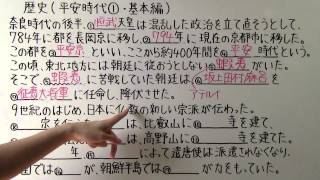 歴史(平安時代①・基本編)
奈良時代の後半、①桓武天皇は混乱した政治を立て直そうとして、
784年に都を長岡京に移し、②794年に現在の京都市に移した。
この都を③平安京といい、ここから約400年間を④平安時代という。
この頃、東北地方には朝廷に従おうとしない⑤蝦夷がいた。
そこで⑥蝦夷に苦戦していた朝廷は、⑦坂上田村麻呂を
⑧征夷大将軍に任命し、降伏させた。アテルイ
9世紀のはじめ、日本に仏教の新しい宗派が伝わった。
宗を は、比叡山に 寺を建て、
は、高野山に 寺を建てた。
年 によって遣唐使は派遣されなくなり、
国では が、朝鮮半島では が力をもっていた。